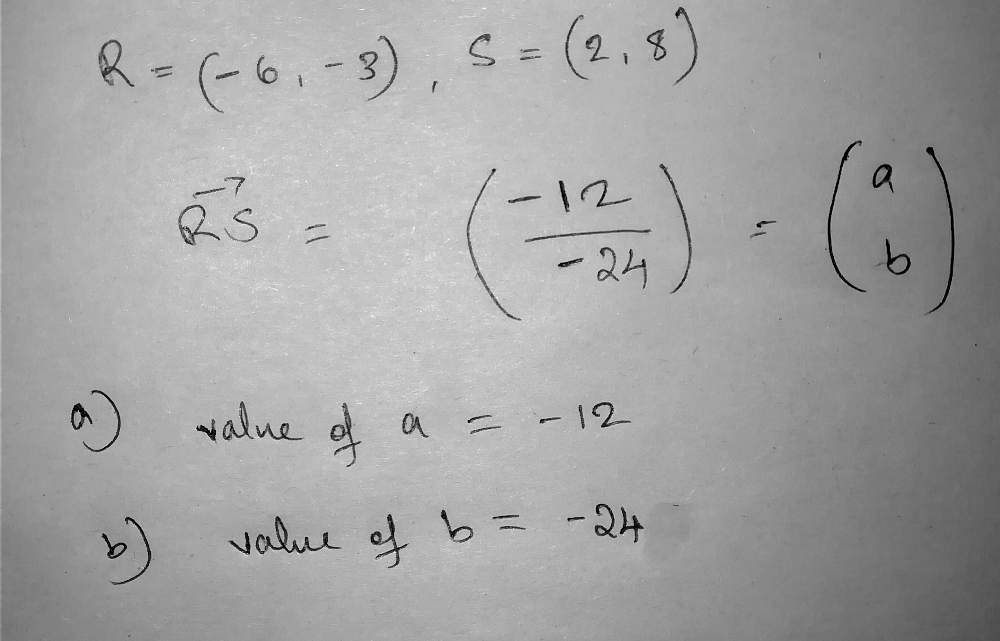 R = (-6, -3), S = (2, 8)
→
RS = (-12/-24) = (a b)
a) value of a = -12
b) value of b = -24